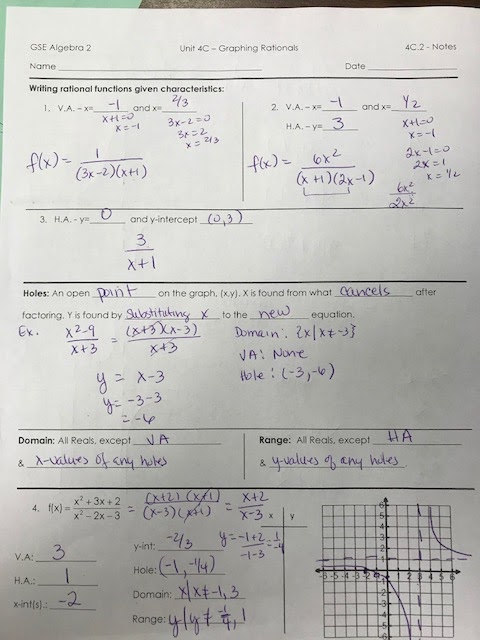 GSE Algebra 2 Unit 4C – Graphing Rationals 4C.2 - Notes
Name Date
Writing rational functions given characteristics:
1. V.A. – x= -1 and x= 2/3
x+1=0 3x-2=0
x=-1 3x=2
x=2/3
f(x) = 1/((3x-2)(x+1))
2. V.A. – x= -1 and x= 1/2
H.A. – y= 3
x+1=0
x=-1
2x-1=0
2x=1
x=1/2
f(x) = 6x²/((x+1)(2x-1))
6x²/2x²
3. H.A. - y= 0 and y-intercept (0,3)
3/(x+1)
Holes: An open point on the graph, (x,y). X is found from what cancels after
factoring. Y is found by substituting x to the new equation.
Ex. (x²-9)/(x+3) = ((x+3)(x-3))/(x+3)
y = x-3
y = -3-3
= -6
Domain: {x|x≠-3}
VA: None
Hole: (-3,-6)
Domain: All Reals, except VA
& x-values of any holes
Range: All Reals, except HA
& y-values of any holes.
4. f(x) = (x² + 3x + 2)/(x² - 2x - 3) = ((x+2)(x+1))/((x-3)(x+1)) = (x+2)/(x-3)
x y
V.A: 3
H.A.: 1
x-int(s).: -2
y-int: -2/3
y = (-1+2)/(-1-3) = 1/-4
Hole: (-1, -1/4)
Domain: x|x≠-1, 3
Range: y|y≠ -1/4, 1